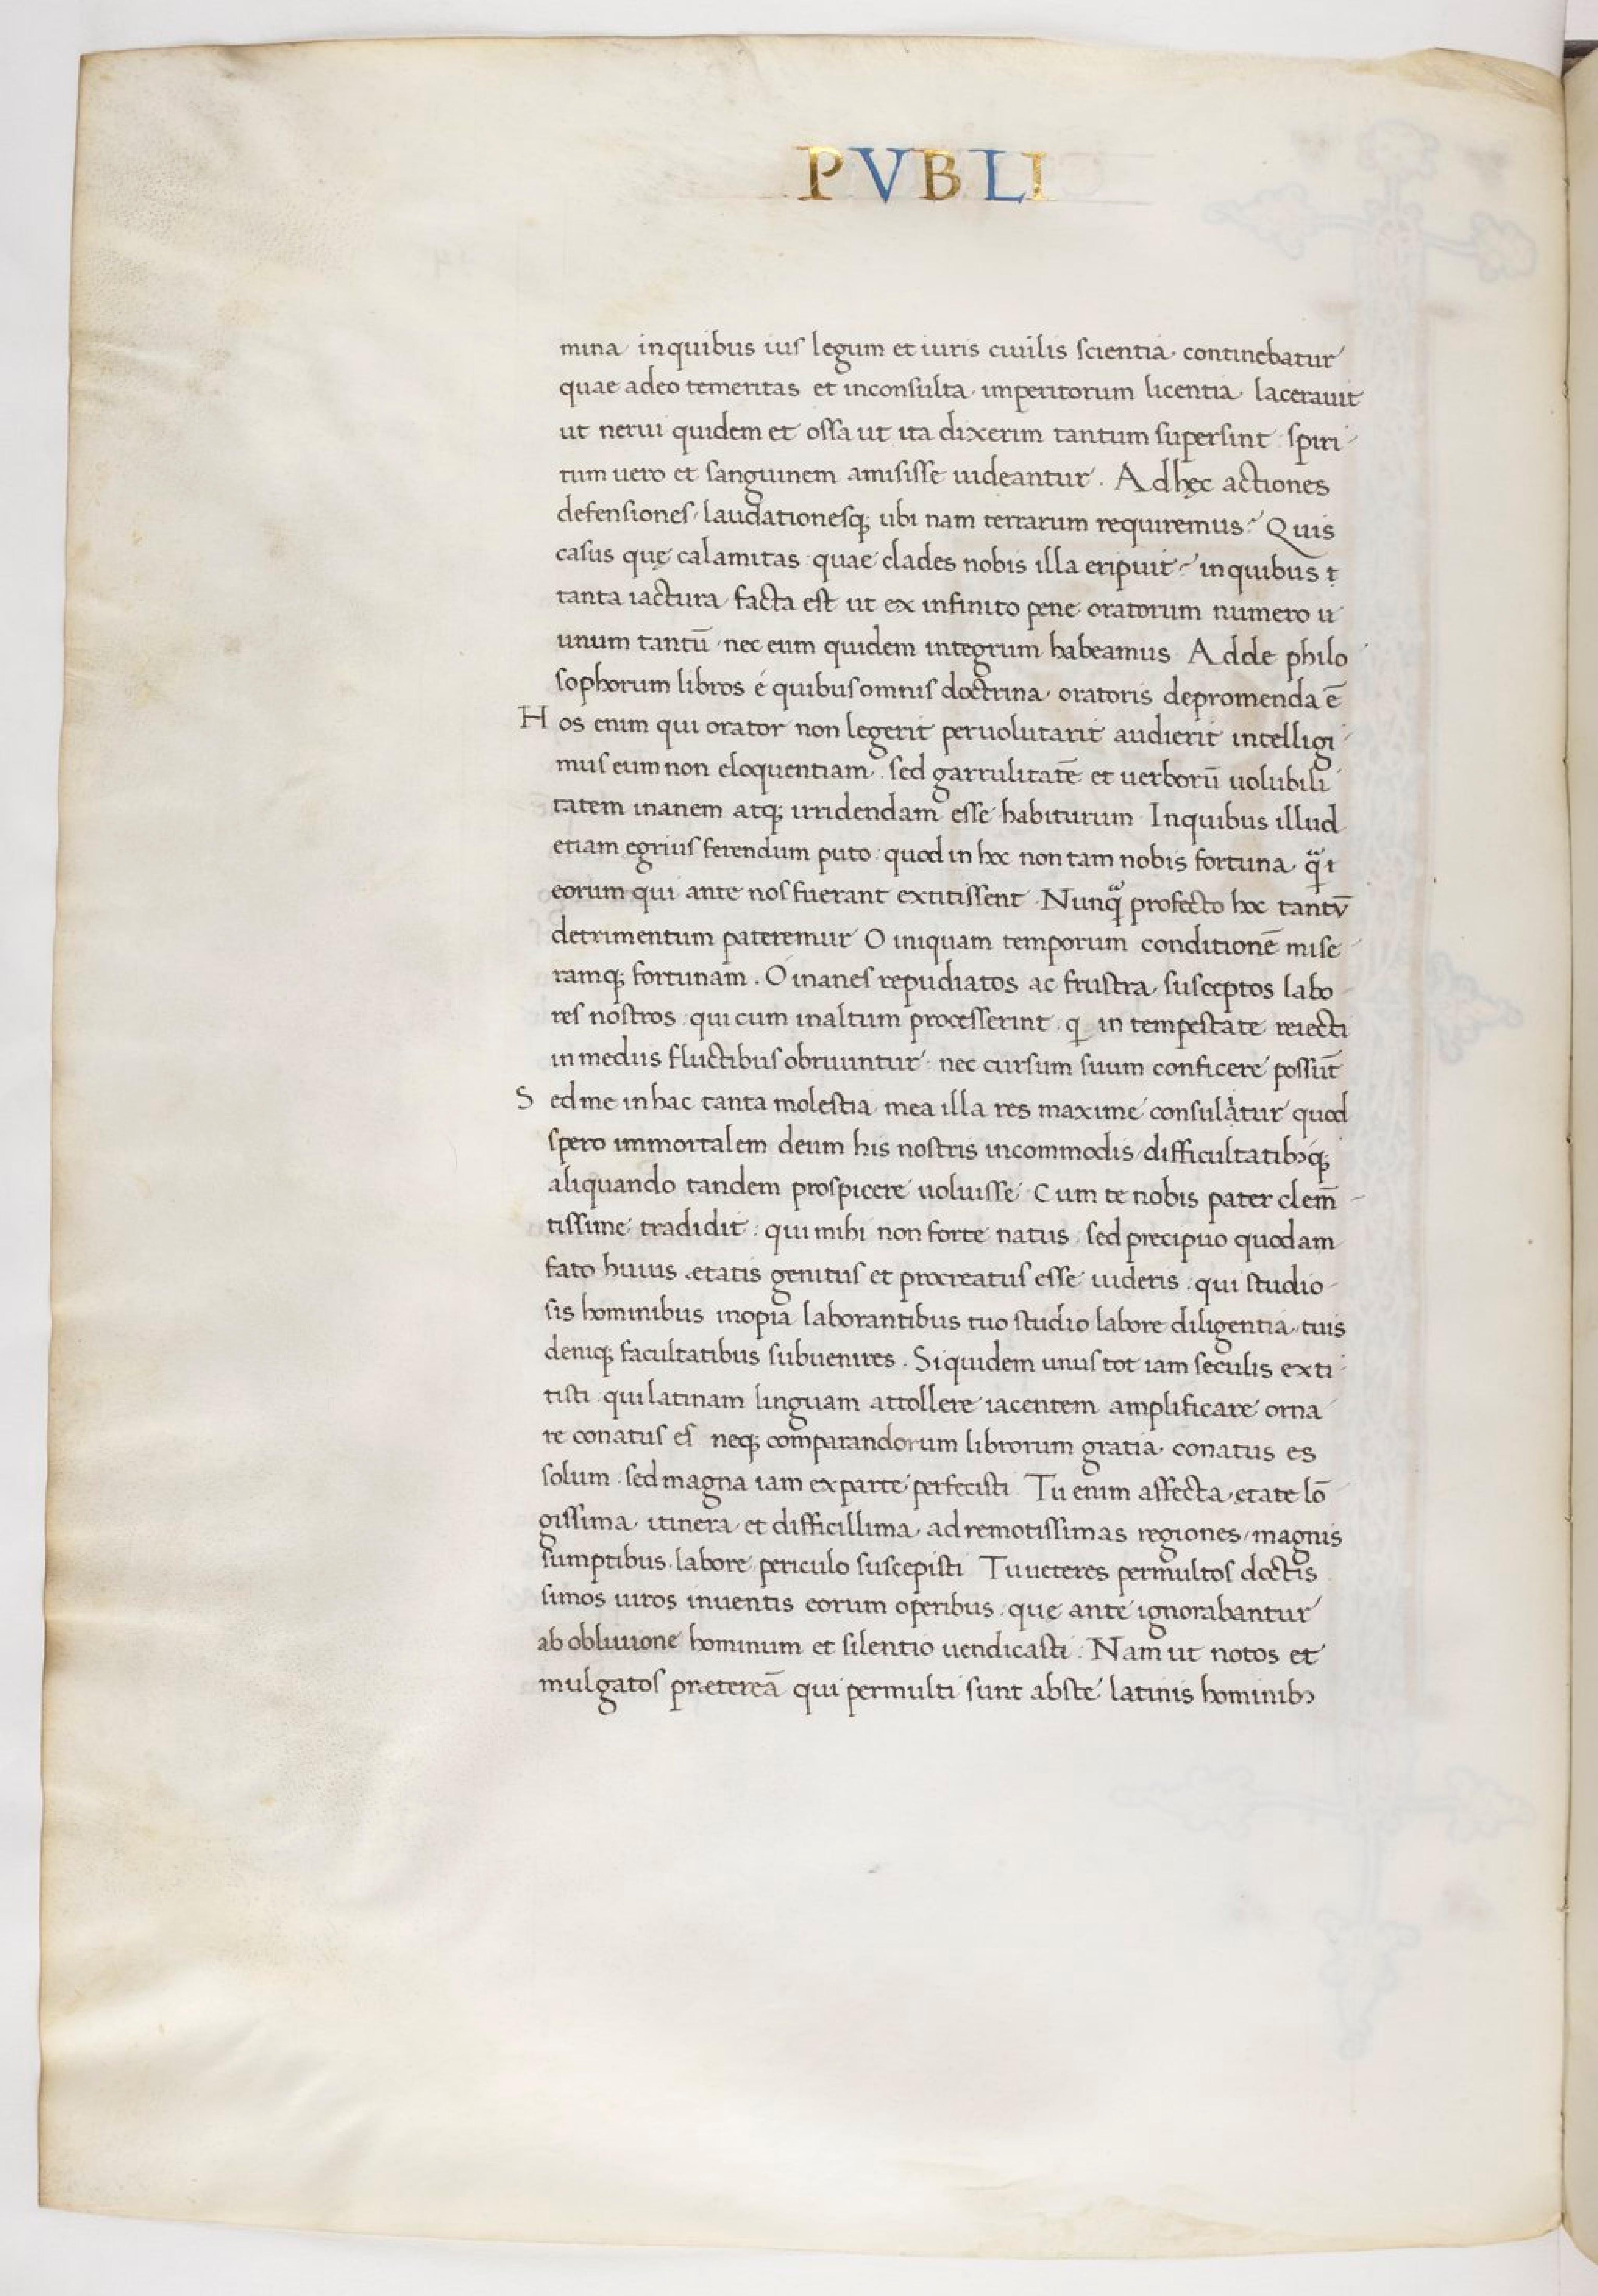 PVBLI
mina inquibus ius legum et iuris ciuilis scientia continebatur
quae adeo temeritas et inconsulta imperitorum licentia lacerauit
ut nerui quidem et ossa ut ita dixerim tantum supersint spiri-
tum uero et sanguinem amisisse uideantur. Adhęc actiones
defensiones laudationesq; ubi nam terrarum requiremus? Quis
casus quę calamitas quae clades nobis illa eripuit? inquibus t
tanta iactura facta est ut ex infinito pene oratorum numero u
unum tantū nec eum quidem integrum habeamus Adde philo
sophorum libros é quibus omnis doctrina oratoris depromenda ē
Hos enim qui orator non legerit peruolutarit audierit intelligi-
mus eum non eloquentiam. sed garrulitatē et uerborū uolubili
tatem inanem atq; irridendam esse habiturum Inquibus illud
etiam egrius ferendum puto: quod in hoc non tam nobis fortuna q̃ı
eorum qui ante nos fuerant extitissent Nunq̃ profecto hoc tantv̄
detrimentum pateremur O iniquam temporum conditionē mise-
ramq; fortunam. O inanes repudiatos ac frustra susceptos labo-
res nostros qui cum inaltum processerint q in tempestate reiecti
in mediis fluctibus obruuntur nec cursum suum conficere possūt
Sed me in hac tanta molestia mea illa res maxime consulatur quod
spero immortalem deum his nostris incommodis/difficultatibꝫq;
aliquando tandem prospicere uoluisse Cum te nobis pater clem̄-
tissime tradidit: qui mihi non forte natus sed precipuo quodam
fato huius ętatis genitus et procreatus esse uideris. qui studio-
sis hominibus inopia laborantibus tuo studio labore diligentia tuis
deniq; facultatibus subuenires. Siquidem unus tot iam seculis exti-
tisti qui latinam linguam attollere iacentem amplificare orna
re conatus es neq; comparandorum librorum gratia conatus es
solum sed magna iam ex parte perfecisti Tu enim affecta ętate lō
gissima itinera et difficillima ad remotissimas regiones/magnis
sumptibus labore periculo suscepisti Tu ueteres permultos doctis
simos uiros inuentis eorum operibus. quę ante ignorabantur
ab obliuione hominum et silentio uendicasti. Nam ut notos et
mulgatos prætereā qui permulti sunt abste latinis hominibꝫ